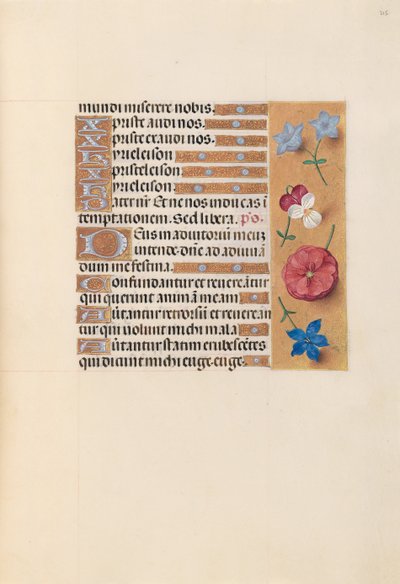 215
mundi miserere nobis.
Xpriste audi nos.
Xpriste exaudi nos.
Kyrieleison
Xpisteleison
Kyrieleison.
Pater nr̄ Et ne nos inducas ī
temptationem. Sed libera. p̄o.
Deus in adiutoriū meuȝ
intende. dn̄e ad adiuuā
dum me festina.
Confundantur et reuereātur
qui querunt animā meam
Auertantur retrorsū et reuereān
tur qui uolunt michi mala
Auertantur statim erubescētes
qui dicunt michi euge euge.